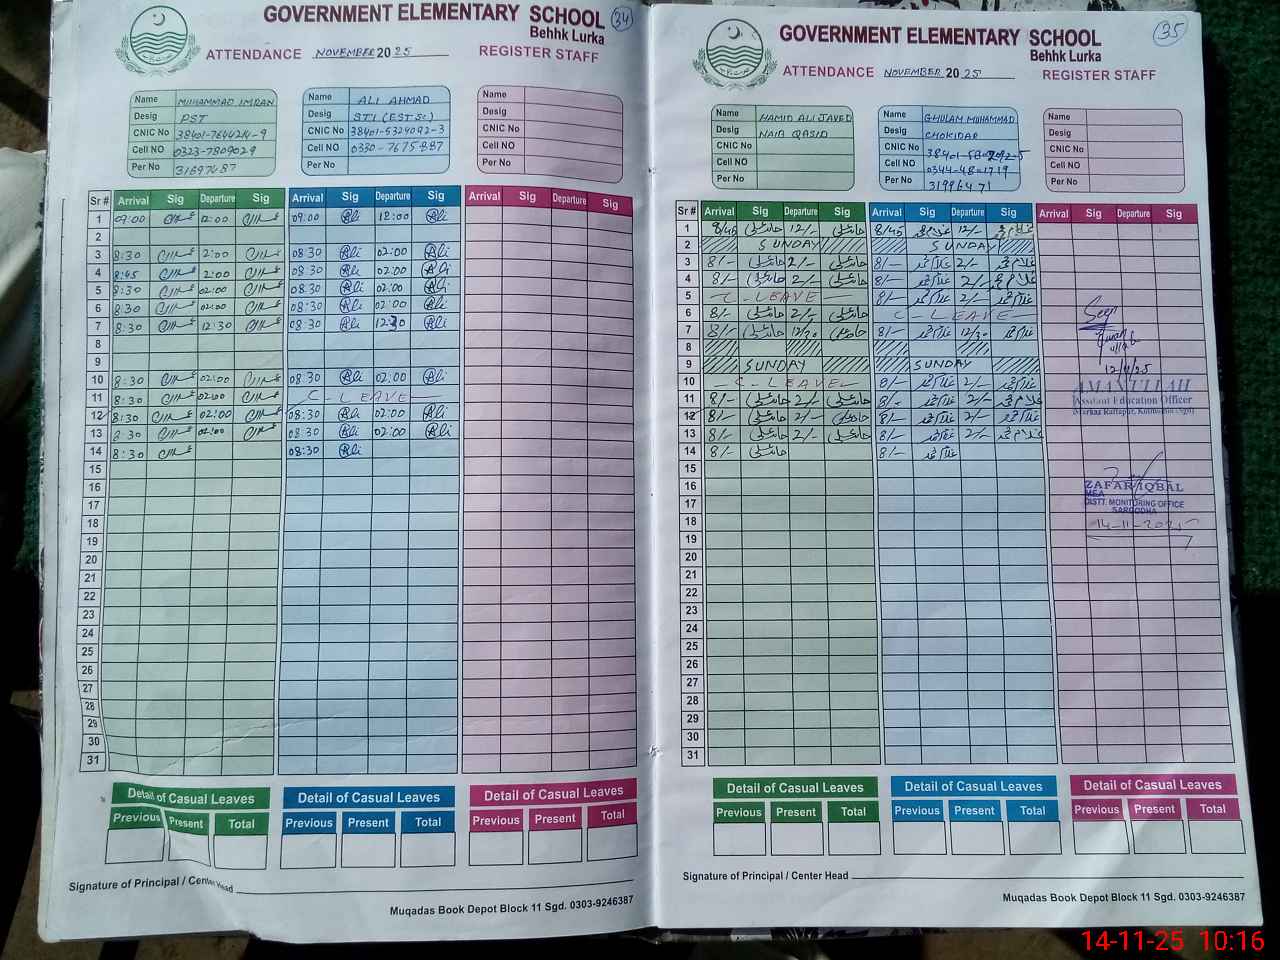 GOVERNMENT ELEMENTARY SCHOOL 34
Behhk Lurka
ATTENDANCE NOVEMBER 2025 REGISTER STAFF
Name MUHAMMAD IMRAN
Desig PST
CNIC No 38401-7644214-9
Cell NO 0323-7809029
Per No 31697687
Name ALI AHMAD
Desig STI (EST.Sc)
CNIC No 38401-5324092-3
Cell NO 0330-7675887
Per No
Name
Desig
CNIC No
Cell NO
Per No
Sr # Arrival Sig Departure Sig Arrival Sig Departure Sig Arrival Sig Departure Sig
1 09:00 12:00 09:00 Ali 12:00 Ali
2
3 8:30 2:00 08:30 Ali 02:00 Ali
4 8:45 2:00 08:30 Ali 02:00 Ali
5 8:30 02:00 08:30 Ali 02:00 Ali
6 8:30 02:00 08:30 Ali 02:00 Ali
7 8:30 12:30 08:30 Ali 12:30 Ali
8
9
10 8:30 02:00 08:30 Ali 02:00 Ali
11 8:30 02:00 C-LEAVE
12 8:30 02:00 08:30 Ali 02:00 Ali
13 8:30 02:00 08:30 Ali 02:00 Ali
14 8:30 08:30 Ali
15
16
17
18
19
20
21
22
23
24
25
26
27
28
29
30
31
Detail of Casual Leaves Detail of Casual Leaves Detail of Casual Leaves
Previous Present Total Previous Present Total Previous Present Total
Signature of Principal / Center Head
Muqadas Book Depot Block 11 Sgd. 0303-9246387
GOVERNMENT ELEMENTARY SCHOOL 35
Behhk Lurka
ATTENDANCE NOVEMBER 2025 REGISTER STAFF
Name HAMID ALI JAVED
Desig NAIB QASID
CNIC No
Cell NO
Per No
Name GHULAM MUHAMMAD
Desig CHOKIDAR
CNIC No
Cell NO
Per No 31996471
Name
Desig
CNIC No
Cell NO
Per No
Sr # Arrival Sig Departure Sig Arrival Sig Departure Sig Arrival Sig Departure Sig
1 8/45 حامد علی 12/- حامد علی 8/45 غلام محمد 12/- غلام محمد
2 SUNDAY SUNDAY
3 8/- حامد علی 2/- حامد علی 8/- غلام محمد 2/- غلام محمد
4 8/- حامد علی 2/- حامد علی 8/- غلام محمد 2/- غلام محمد
5 C-LEAVE 8/- غلام محمد 2/- غلام محمد
6 8/- حامد علی 2/- حامد علی C-LEAVE
7 8/- حامد علی 12/30 حامد علی 8/- غلام محمد 12/30 غلام محمد
8
9 SUNDAY SUNDAY
10 C-LEAVE 8/- غلام محمد 2/- غلام محمد
11 8/- حامد علی 2/- حامد علی 8/- غلام محمد 2/- غلام محمد
12 8/- حامد علی 2/- حامد علی 8/- غلام محمد 2/- غلام محمد
13 8/- حامد علی 2/- حامد علی 8/- غلام محمد 2/- غلام محمد
14 8/- حامد علی 8/- غلام محمد
15
16
17
18
19
20
21
22
23
24
25
26
27
28
29
30
31
Seen
12/11/25
AMANULLAH
Assistant Education Officer
ZAFAR IQBAL
MEA
DISTT. MONITORING OFFICE
SARGODHA
14-11-2025
Detail of Casual Leaves Detail of Casual Leaves Detail of Casual Leaves
Previous Present Total Previous Present Total Previous Present Total
Signature of Principal / Center Head
Muqadas Book Depot Block 11 Sgd. 0303-9246387
14-11-25 10:16